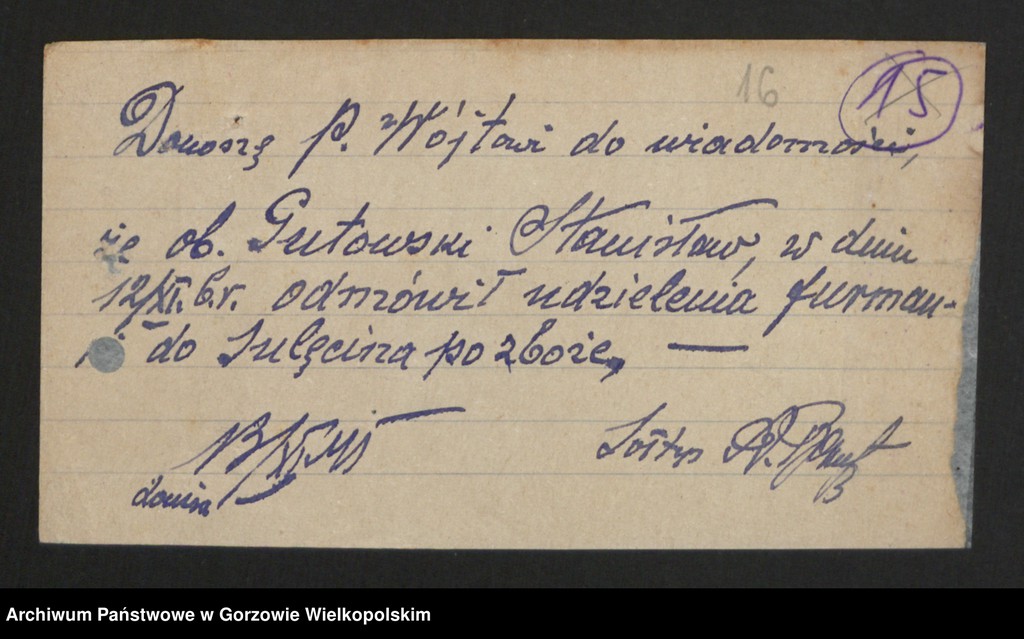 16
15
Donoszę P. Wójtowi do wiadomości,
że ob. Gutowski Stanisław, w dniu
12/XI. b.r. odmówił udzielenia furman-
i do Sulęcina po zboże, —
13/XI.45
Sołtys
Archiwum Państwowe w Gorzowie Wielkopolskim